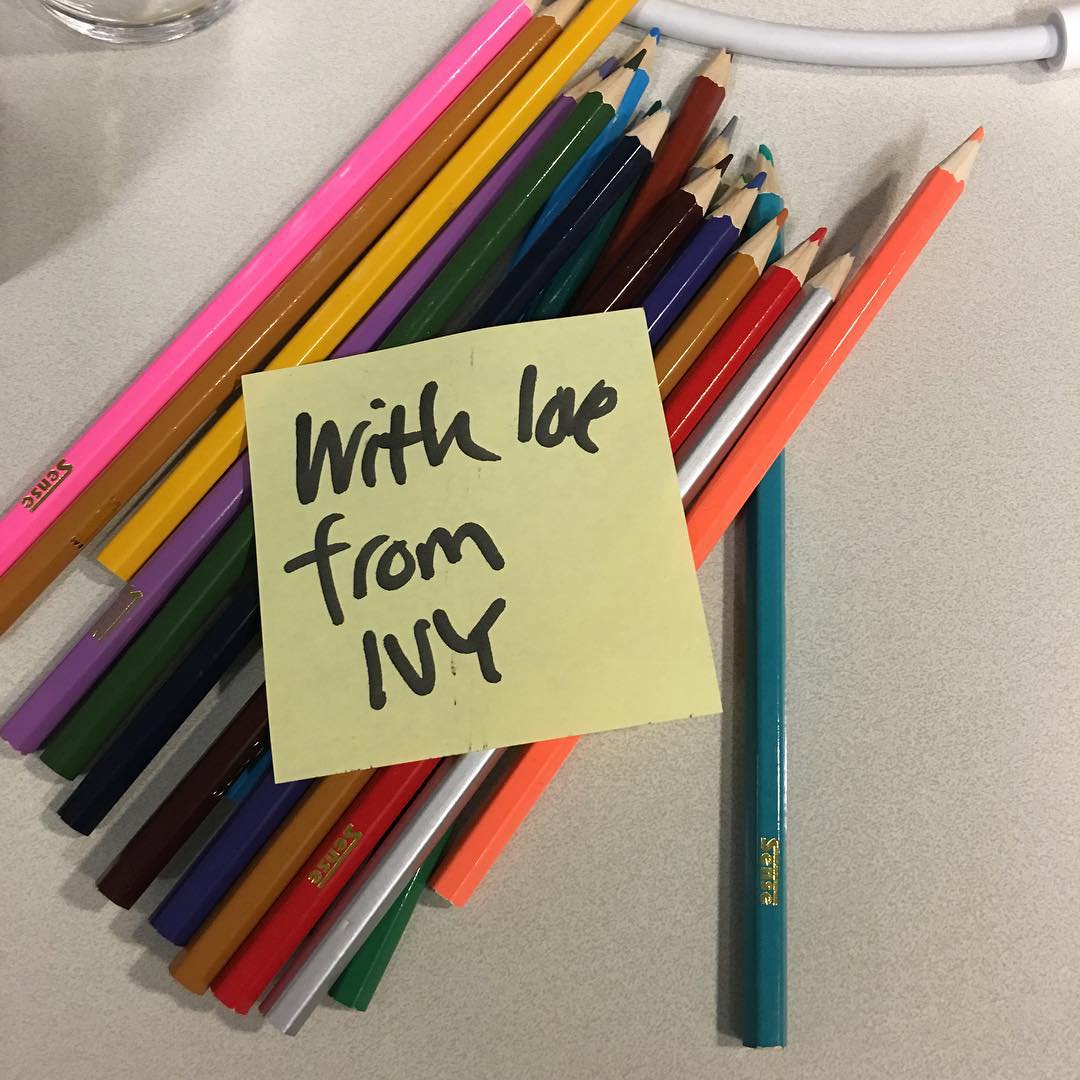 With love
from
IVY
Sense
Sense
Sense